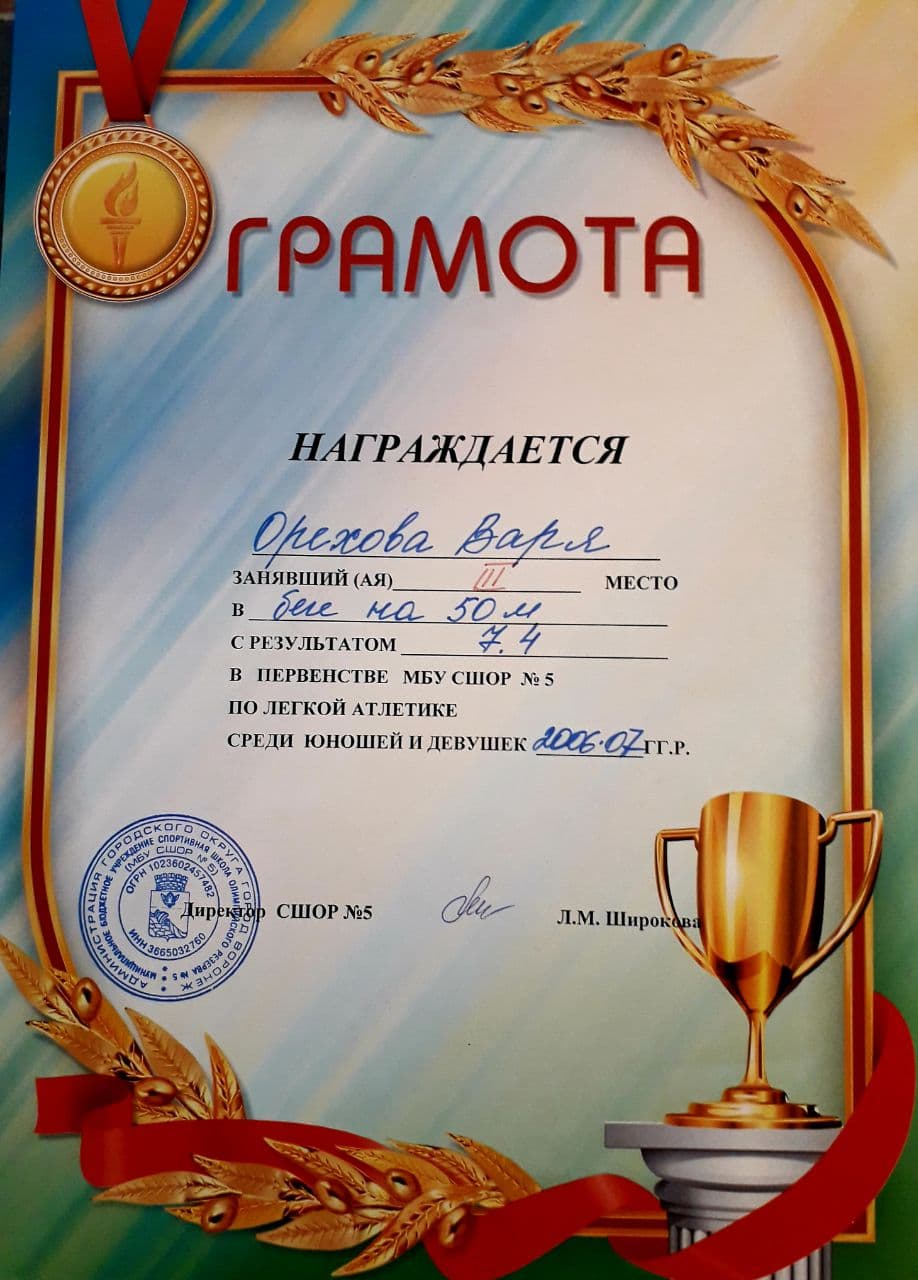 ГРАМОТА
НАГРАЖДАЕТСЯ
Орехова Варя
ЗАНЯВШИЙ (АЯ) III МЕСТО
В беге на 50 м
С РЕЗУЛЬТАТОМ 7.4
В ПЕРВЕНСТВЕ МБУ СШОР № 5
ПО ЛЕГКОЙ АТЛЕТИКЕ
СРЕДИ ЮНОШЕЙ И ДЕВУШЕК 2006-07 ГГ.Р.
АДМИНИСТРАЦИЯ ГОРОДСКОГО ОКРУГА ГОРОД ВОРОНЕЖ
МУНИЦИПАЛЬНОЕ БЮДЖЕТНОЕ УЧРЕЖДЕНИЕ СПОРТИВНАЯ ШКОЛА ОЛИМПИЙСКОГО РЕЗЕРВА № 5
(МБУ СШОР № 5)
ОГРН 1023602457482
ИНН 3665032760
Директор СШОР №5 Л.М. Широкова